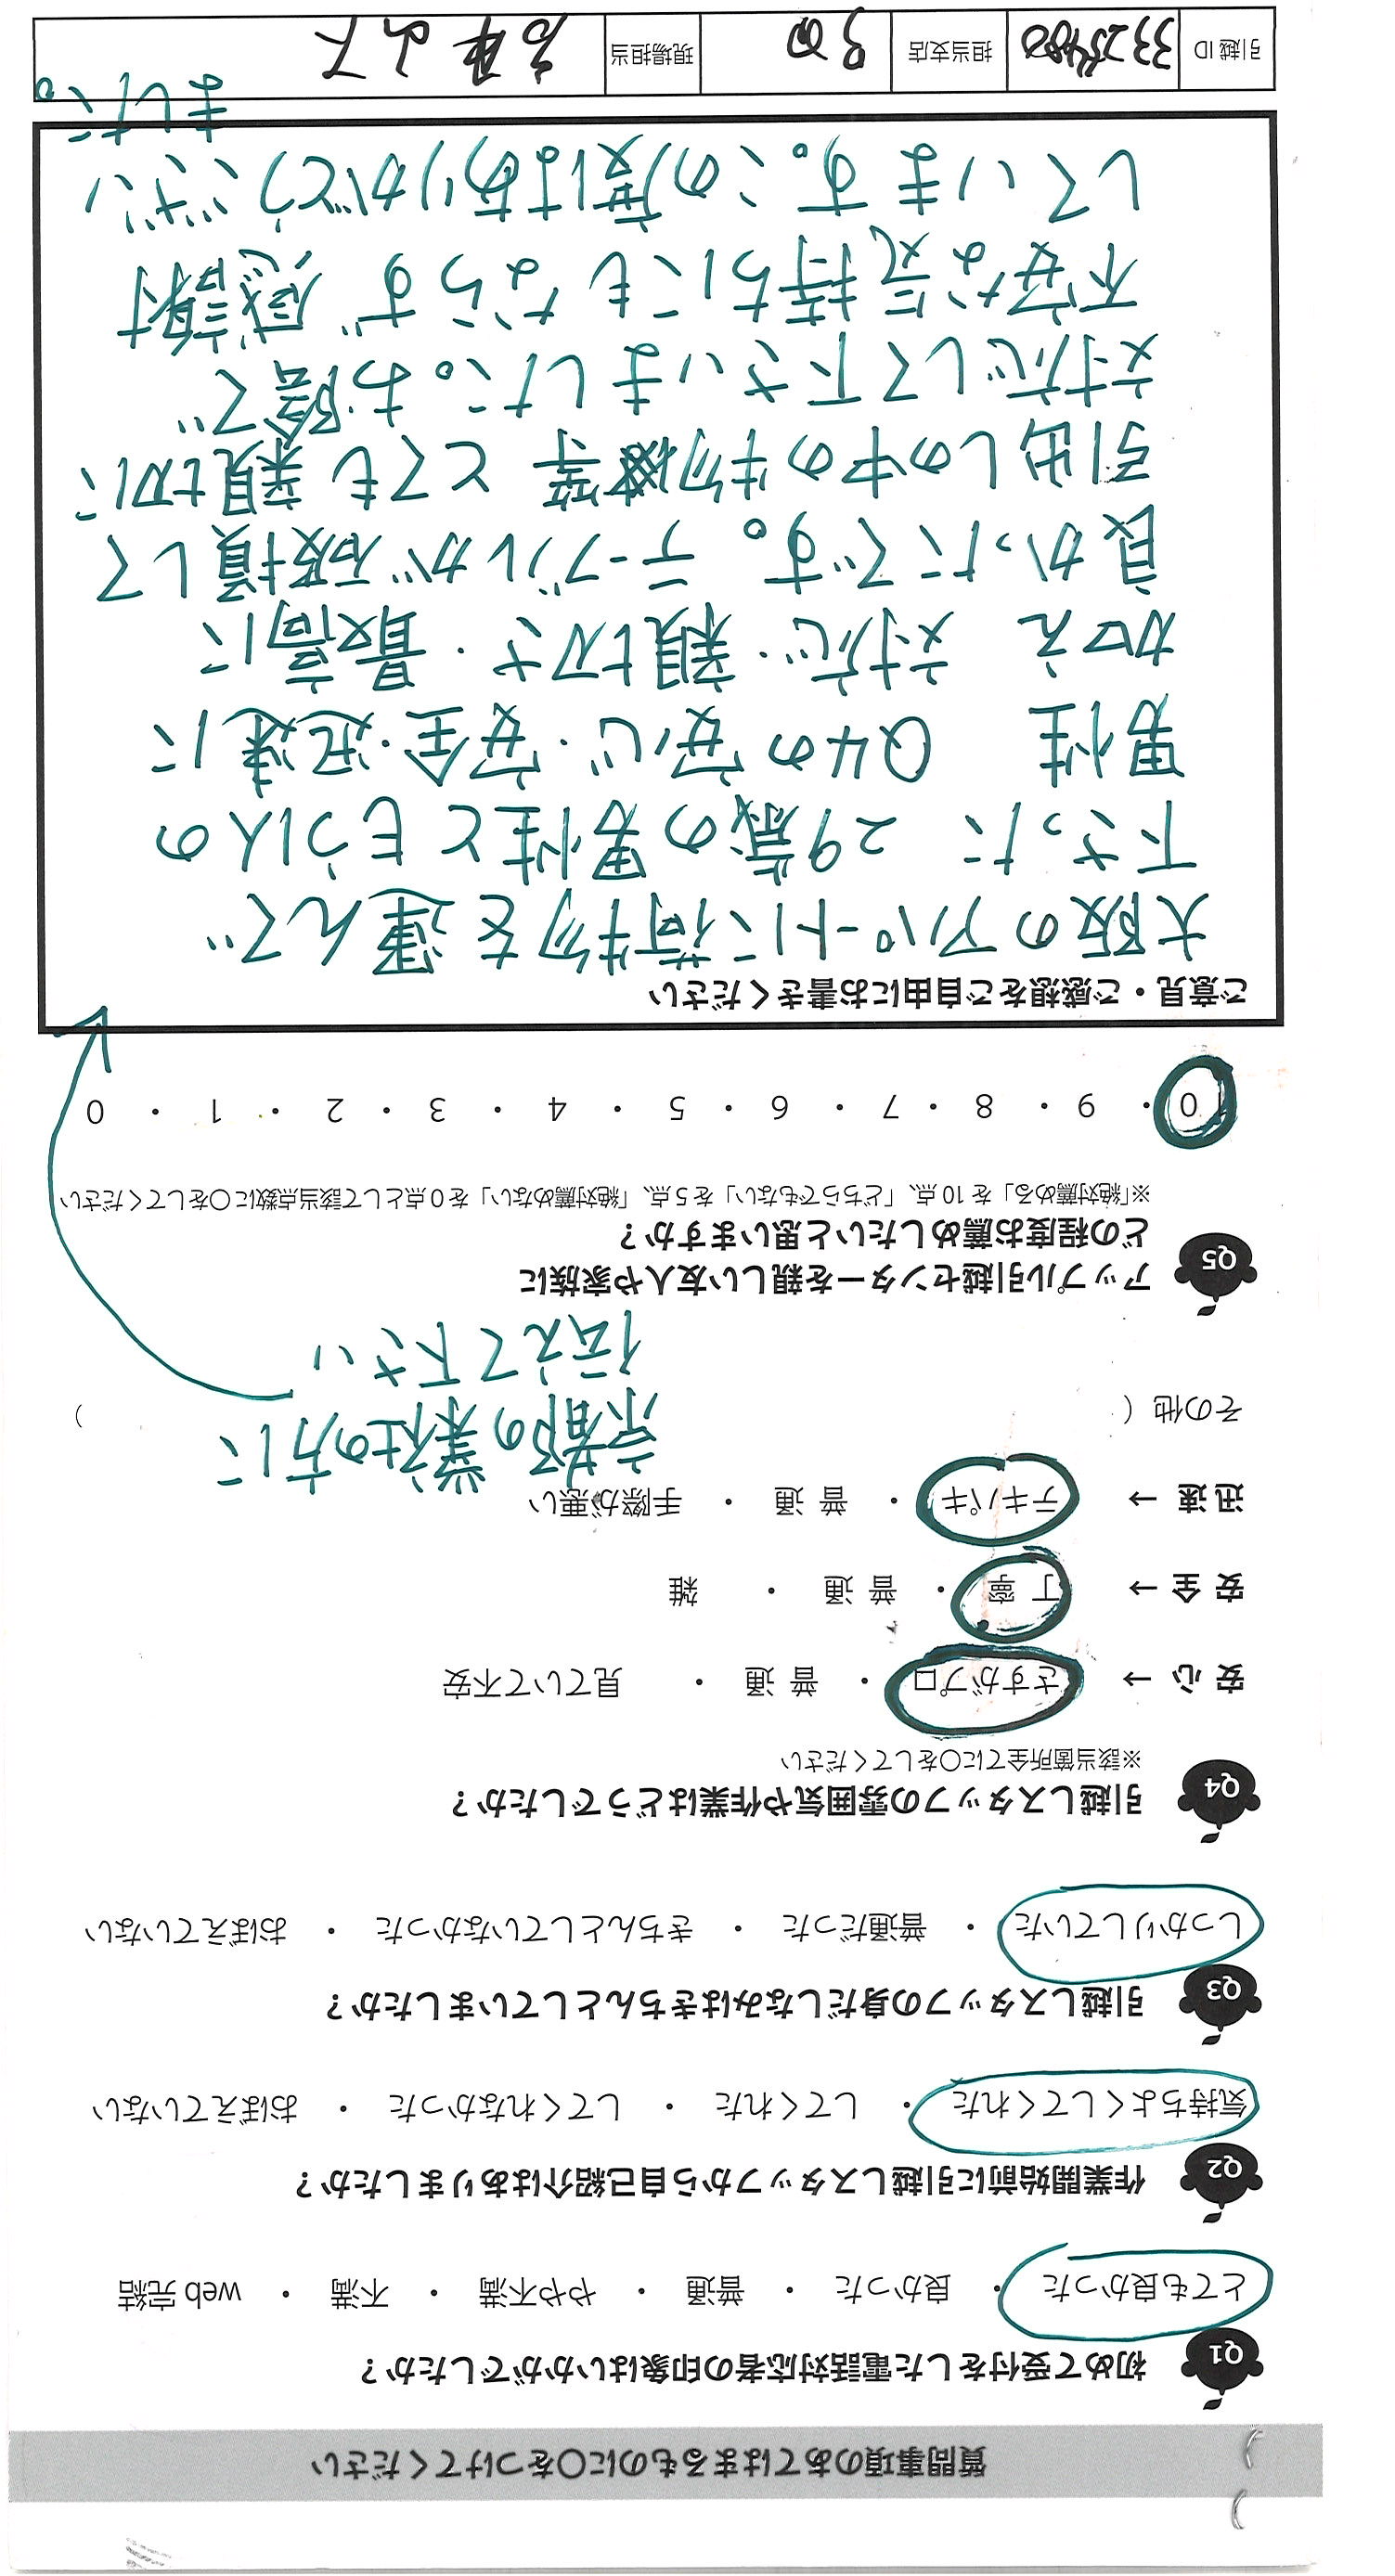 質問事項のあてはまるものに〇をつけてください
Q1 初めて受付をした電話対応者の印象はいかがでしたか？
とても良かった ・ 良かった ・ 普通 ・ やや不満 ・ 不満 ・ web 完結
Q2 作業開始前に引越しスタッフから自己紹介はありましたか？
気持ちよくしてくれた ・ してくれた ・ してくれなかった ・ おぼえていない
Q3 引越しスタッフの身だしなみはきちんとしていましたか？
しっかりしていた ・ 普通だった ・ きちんとしていなかった ・ おぼえていない
Q4 引越しスタッフの雰囲気や作業はどうでしたか？
※該当箇所全てに〇をしてください
安 心 → さすがプロ ・ 普 通 ・ 見ていて不安
安 全 → 丁 寧 ・ 普 通 ・ 雑
迅 速 → テキパキ ・ 普 通 ・ 手際が悪い
京都の業社の方に
その他（ ）
伝えて下さい
Q5 アップル引越センターを親しい友人や家族に
どの程度お薦めしたいと思いますか？
※「絶対薦める」を 10 点、「どちらでもない」を 5 点、「絶対薦めない」を 0 点として該当点数に〇をしてください
10 ・ 9 ・ 8 ・ 7 ・ 6 ・ 5 ・ 4 ・ 3 ・ 2 ・ 1 ・ 0
ご意見・ご感想をご自由にお書きください
大阪のアパートに荷物を運んで
下さった 29歳の男性ともう1人の
男性 Q4の安心・安全・迅速に
加え 対応・親切さ・最高に
良かったです。テーブルが破損して
引出しの中の物 等 とても親切に
対応して下さいました。お陰で
不安な気持ちにもならず 感謝
しています。この度はありがとうござい
ました。
引越 ID 担当支店 現場担当